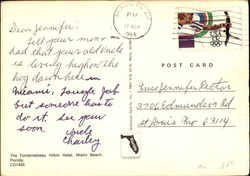 Dear Jennifer:
Tell your mom &
dad that your old Uncle
is living high on the
hog down here in
Miami. Tough job
but someone has to
do it. See you
soon. Uncle
Charley
The Fontainebleau Hilton Hotel, Miami Beach,
Florida.
C01495
1984
USA
POST CARD
Miss Jennifer
3706 Edmundson Rd
St Louis Mo 63114